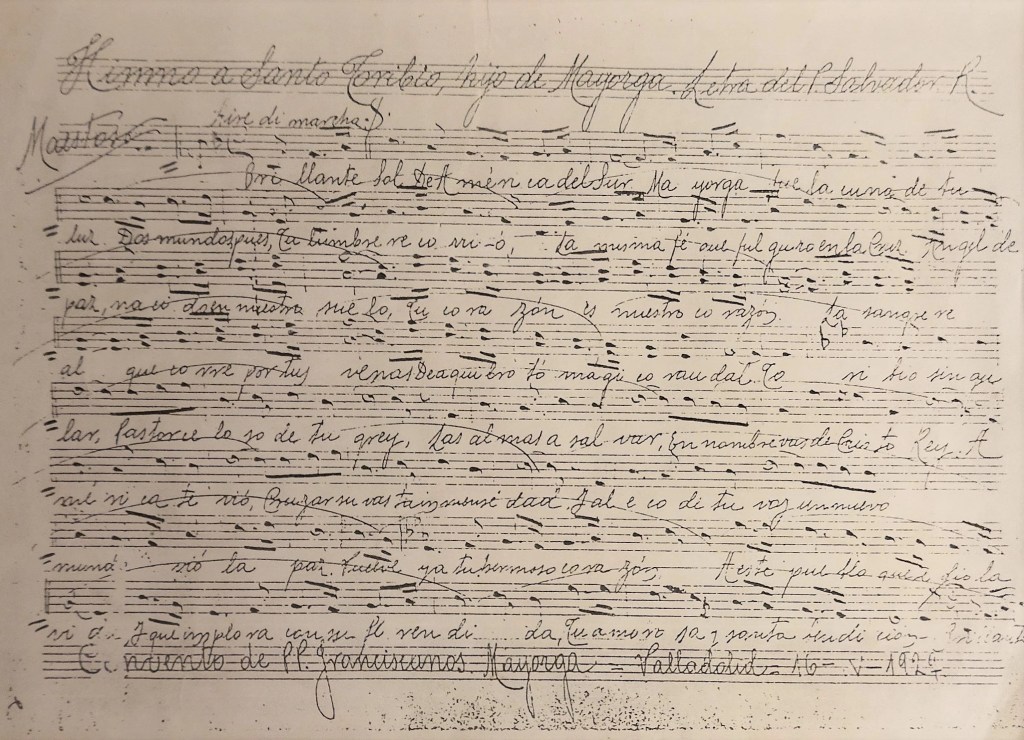 Himno a Santo Toribio, hijo de Mayorga. Letra del P. Salvador R.
Maestoso. Aire di marcha.
Bri llante Sol De A mén ca del Sur Ma yorga fue la cuna de tu
luz Dos mundos pues, Tu lumbre re co rri ó, La misma fé que ful guro en la Cruz Angel de
paz, na ció do en nuestro sue lo, Tu co ra zón és nuestro co razón, La sangre re
al que corre por tus venas De aqui bro tó mági co rau dal. To ri bio sin igu
lar, Pastor ce lo so de tu grey, Las al mas a sal var, En nombre vas de Cris to Rey. A
mé ri ca te vió, Cruzar su vas ta inmensi dad Y al e co de tu voz un nuevo
mund vió la paz. Vuelve ya tu hermoso co ra zón A este pue blo que
vi d Y que implo ra con su fe ren di da, Tu amor sa y santa ben di ción
Convento de PP. Franciscanos. Mayorga = Valladolid = 16 - V - 192